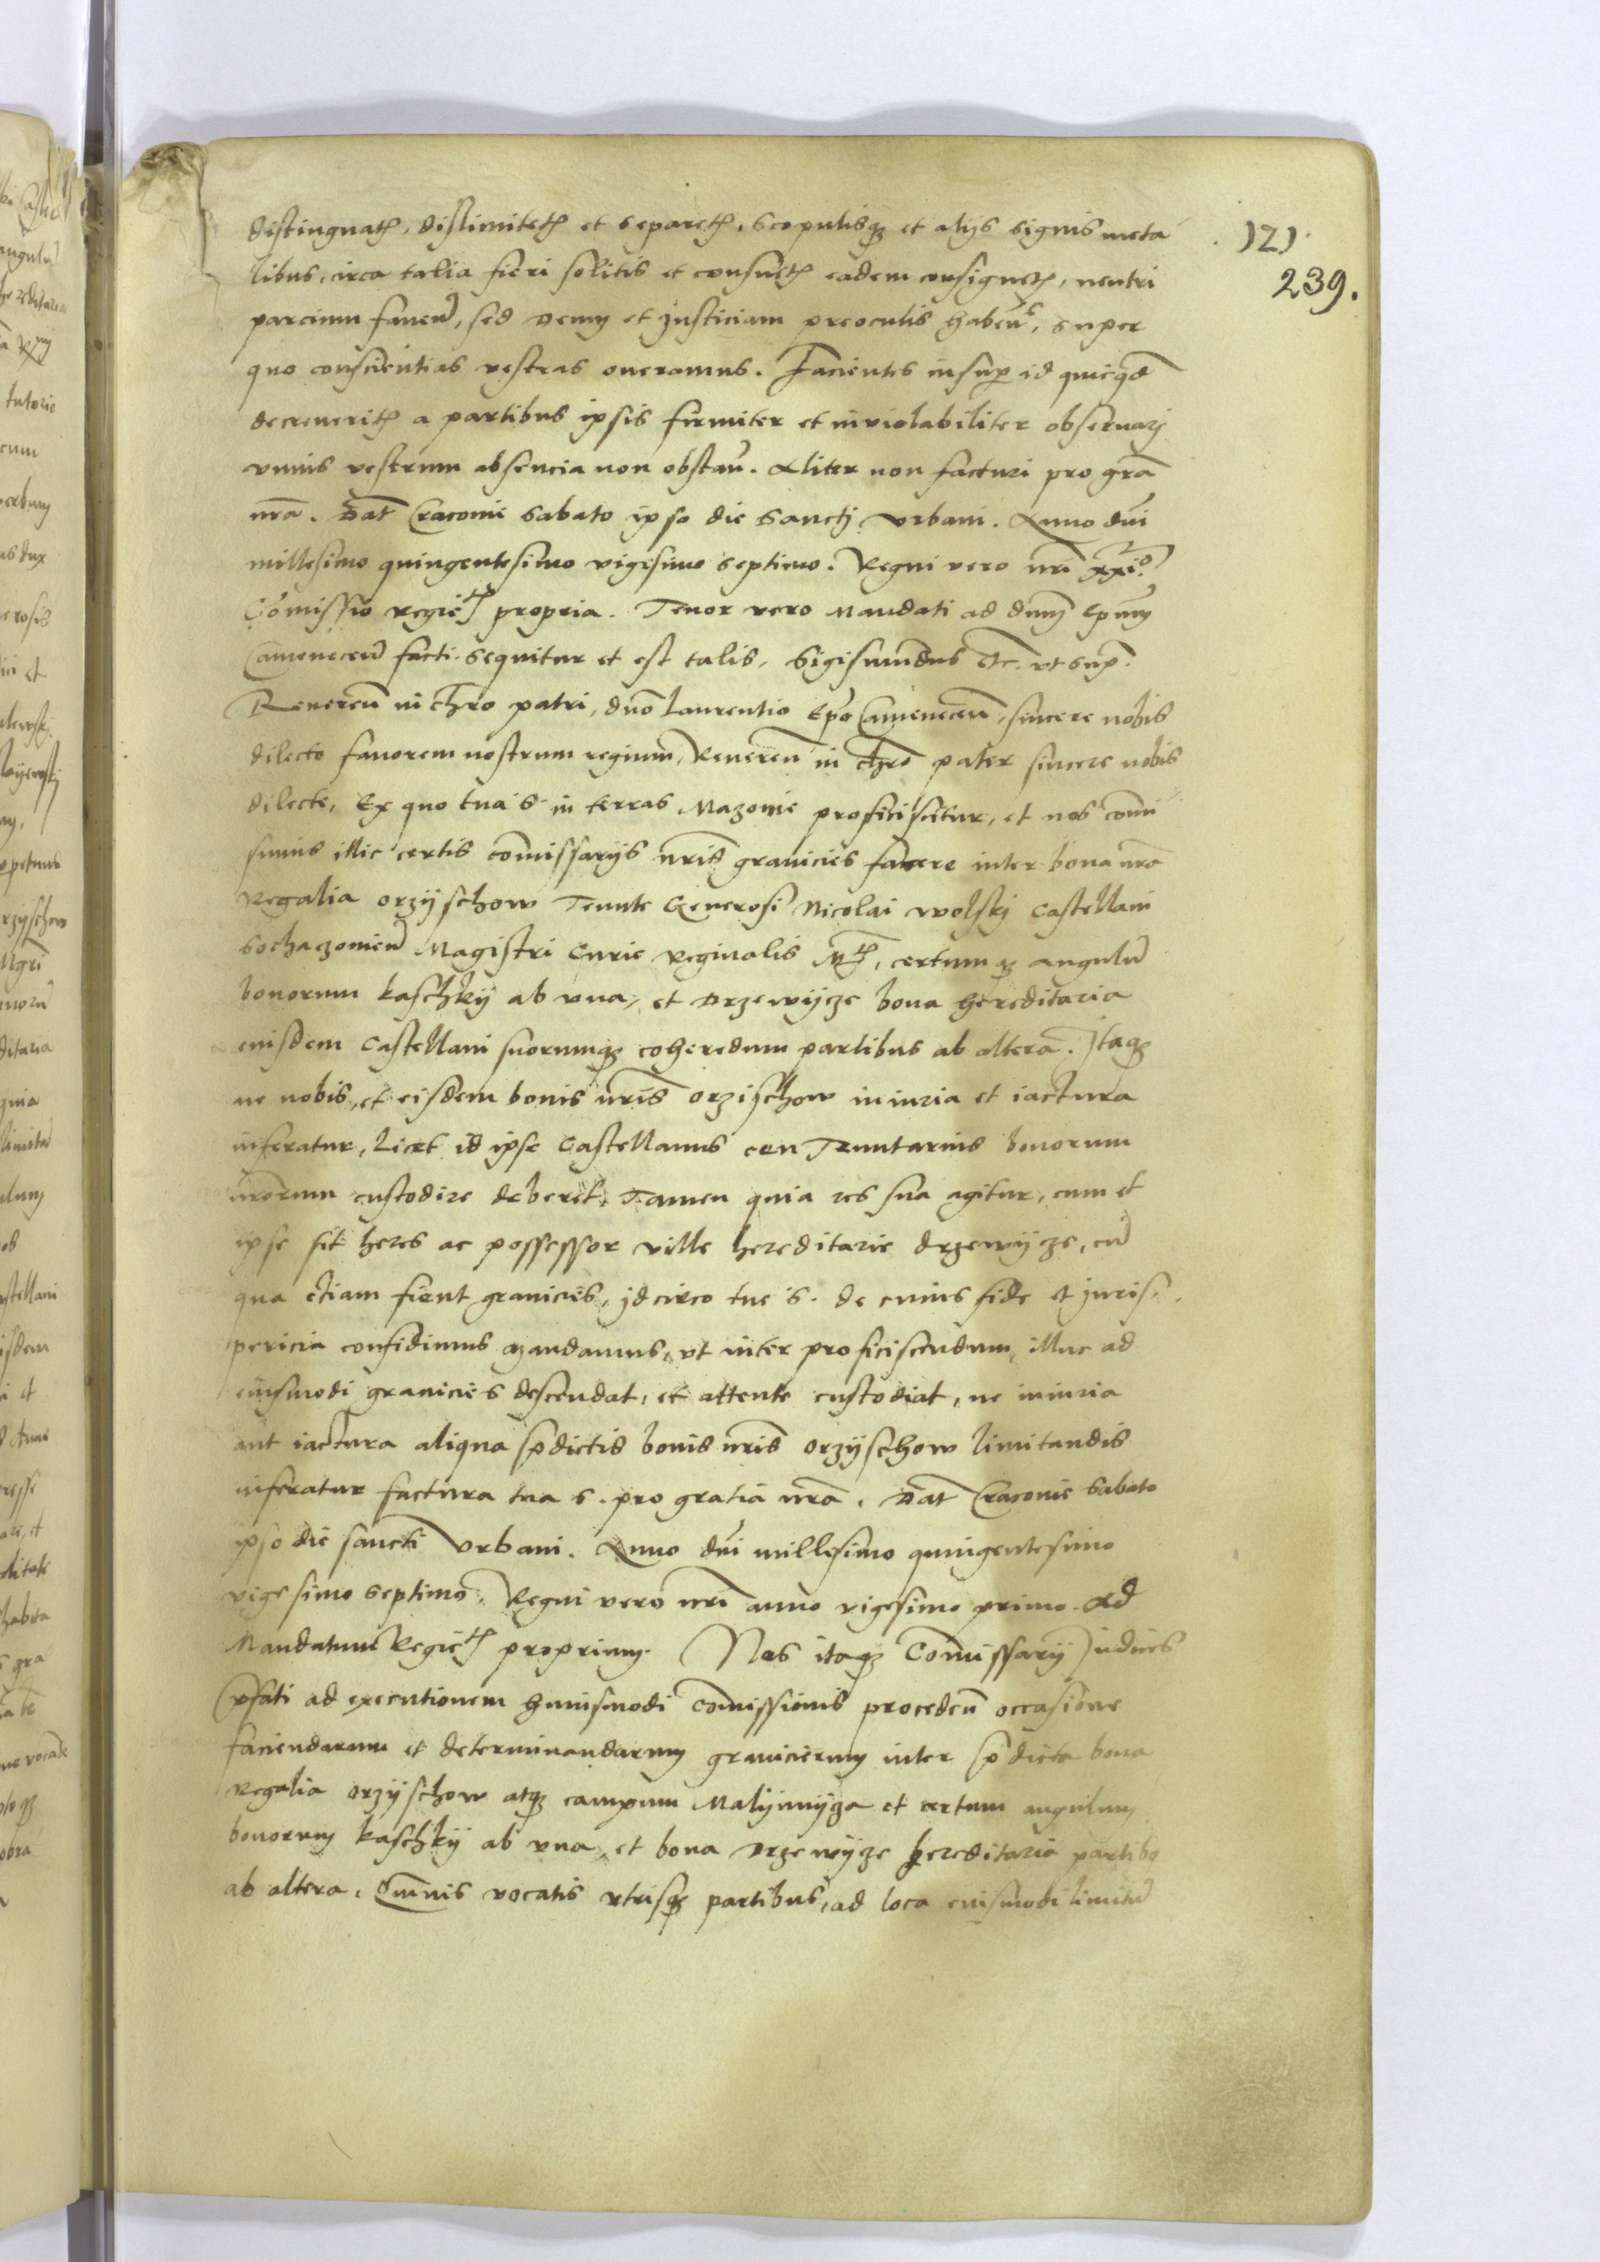 distinguat(is), dislimitet(is) et separet(is), scopulisq(ue) et alijs signis meta
libus, circa talia fieri solitis et consuet(is) eadem consignet(is), neutri
parcium faven(tes), sed Deum et Justiciam preoculis haben(tes), super
quo conscientias vestras oneramus. Facientes insup(er) id quicq(ui)d
decreverit(is) a partibus ipsis firmiter et inviolabiliter observarj
vnius vestrum absencia non obstan(te). Aliter non facturi pro gra
nra. Dat Cracovie Sabato ipso die Sanctj Vrbani. Anno dni
millesimo quingentesimo vigesimo septimo. Regni vero nri xxio.
Comissio regie Mtis propria. Tenor vero Mandati ad dnum Epum
Camenecen facti sequitur et est talis, Sigismundus etc. vt sup.
Reveren in chro patri, dno Laurentio Epo Camenecen, sincere nobis
dilecto favorem nostrum regium, Reveren in chro pater sincere nobis
dilecte, Ex quo tua s. in terras Mazovie proficiscitur, et nos comi
simus illic certis comissarijs nris granicies facere inter bona nra
Regalia orzyschow Tenute Generosi Nicolai wolskj Castellani
Sochaczovien Magistri Curie Reginalis Mtis, certum q(ue) angulu
bonorum kaschky ab vna, et Drzewycze bona hereditaria
eiusdem Castellani suorumq(ue) coheredum partibus ab altera. Itaq(ue)
ne nobis, et eisdem bonis nris orzischow iniuria et iactura
inferatur, licet id ipse Castellanus ceu Tenutarius bonorum
nrorum custodire deberet, Tamen quia res sua agitur, cum et
ipse sit heres ac possessor ville hereditarie drzewycze, cu
qua etiam fient granicies, jdcirco tue s. de cuius fide et juris
pericia confidimus mandamus, vt inter proficiscendum, illuc ad
eiusmodi granicies descendat, et attente custodiat, ne iniuria
aut iactura aliqua pdictis bonis nris orzyschow limitandis
inferatur factura tua s. pro gratia nra. Dat Cracovie Sabato
ipso die sancti Vrbani. Anno dni millesimo quingentesimo
vigesimo septimo. Regni vero nri anno vigesimo primo. Ad
Mandatum Regie Mtis proprium. Nos itaq(ue) Comissarij Judices
pfati ad executionem huiusmodi Comissionis proceden occasione
faciendarum et determinandarum granicierum inter pdicta bona
Regalia orzyschow atq(ue) campum Malynnycza et certum angulum
bonorum kaschky ab vna, et bona Drzewycze hereditaria partibo
ab altera, Omnis vocatis vtrisq(ue) partibus, ad loca eiusmodi limitu
121.
239.